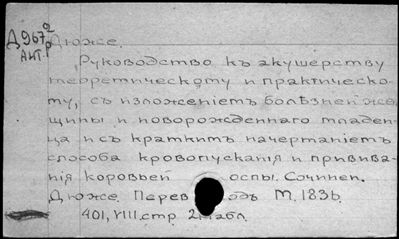 Д967 2р
АНТ.
Дюже.
Руководство къ акушерству
теоретическому и практическо-
му, съ изложеніемъ болѣзней жен
щины и новорожденнаго младен-
ца и съ краткимъ начертаніемъ
способа кровопусканія и прививa-
нія коровьей оспы. Сочинен.
Дюже. Перев одъ М. 1836.
401, VIII, стр. 2 табл.